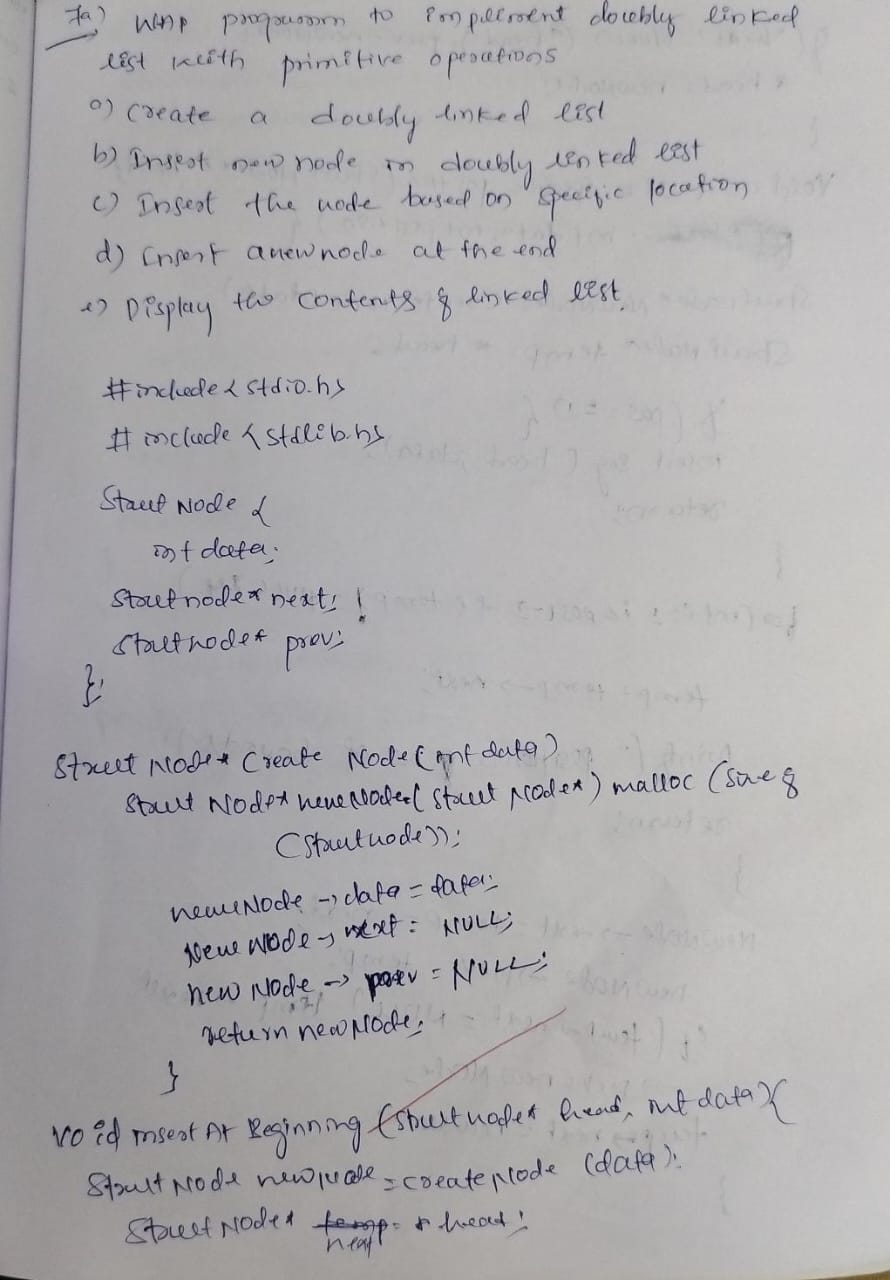 7a) WAP program to implement doubly linked
list with primitive operations
a) Create a doubly linked list
b) Insert new node in doubly linked list
c) Insert the node based on specific location
d) Insert a new node at the end
e) Display the contents of linked list.
#include <stdio.h>
# include <stdlib.h>
Struct Node {
int data;
Struct node* next;
Struct node* prev;
};
Struct Node* Create Node (int data)
Struct Node* newNode=(Struct Node*) malloc (size of
(Struct node));
newNode -> data = data;
New Node -> next = NULL;
new Node -> prev = NULL;
return newNode;
}
Void insert At Beginning (Struct node* head, int data){
Struct Node newnode = create Node (data);
Struct Node* = * head;